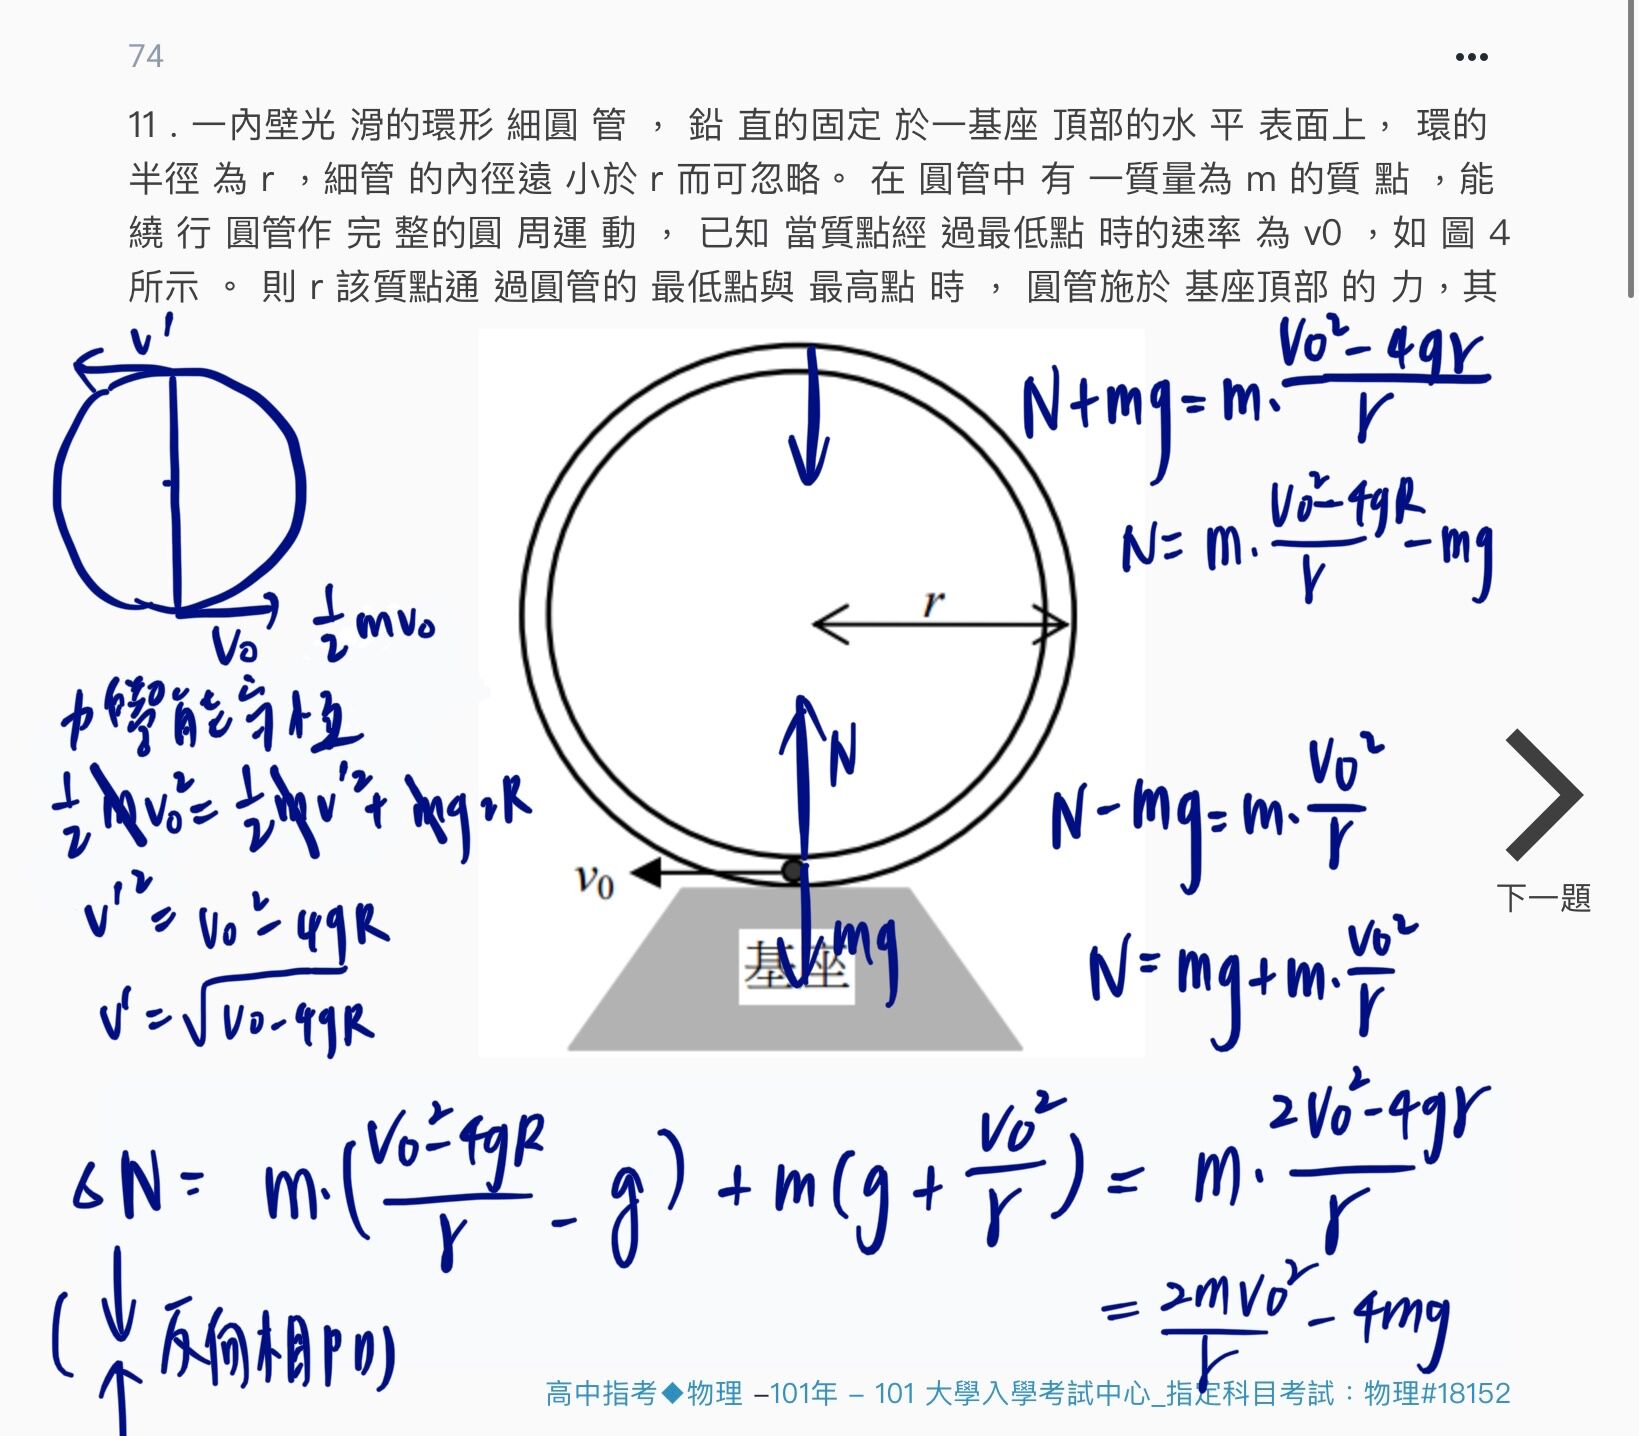 74
11 . 一內壁光 滑的環形 細圓 管 ， 鉛 直的固定 於一基座 頂部的水 平 表面上， 環的
半徑 為 r ，細管 的內徑遠 小於 r 而可忽略。 在 圓管中 有 一質量為 m 的質 點 ，能
繞 行 圓管作 完 整的圓 周運 動 ， 已知 當質點經 過最低點 時的速率 為 v0 ，如 圖 4
所示 。 則 r 該質點通 過圓管的 最低點與 最高點 時 ， 圓管施於 基座頂部 的 力，其
v'
V0
1/2 mv0
力學能守恆
1/2 mv0² = 1/2 mv'² + mg2R
v'² = v0² - 4gR
v' = √v0-4gR
r
N
v0
基座
mg
N+mg = m· (V0²-4gr)/r
N = m· (V0²-4gR)/r - mg
N - mg = m· V0²/r
N = mg + m· V0²/r
下一題
ΔN = m·((V0²-4gR)/r - g) + m(g + V0²/r) = m· (2V0²-4gr)/r
= 2mV0²/r - 4mg
(反向相加)
高中指考◆物理 –101年 – 101 大學入學考試中心_指定科目考試：物理#18152